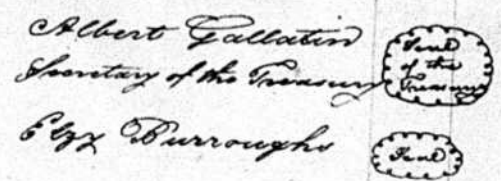 Albert Gallatin
Secretary of the Treasury
Seal
of the
Treasury
Elzy Burroughs
Seal